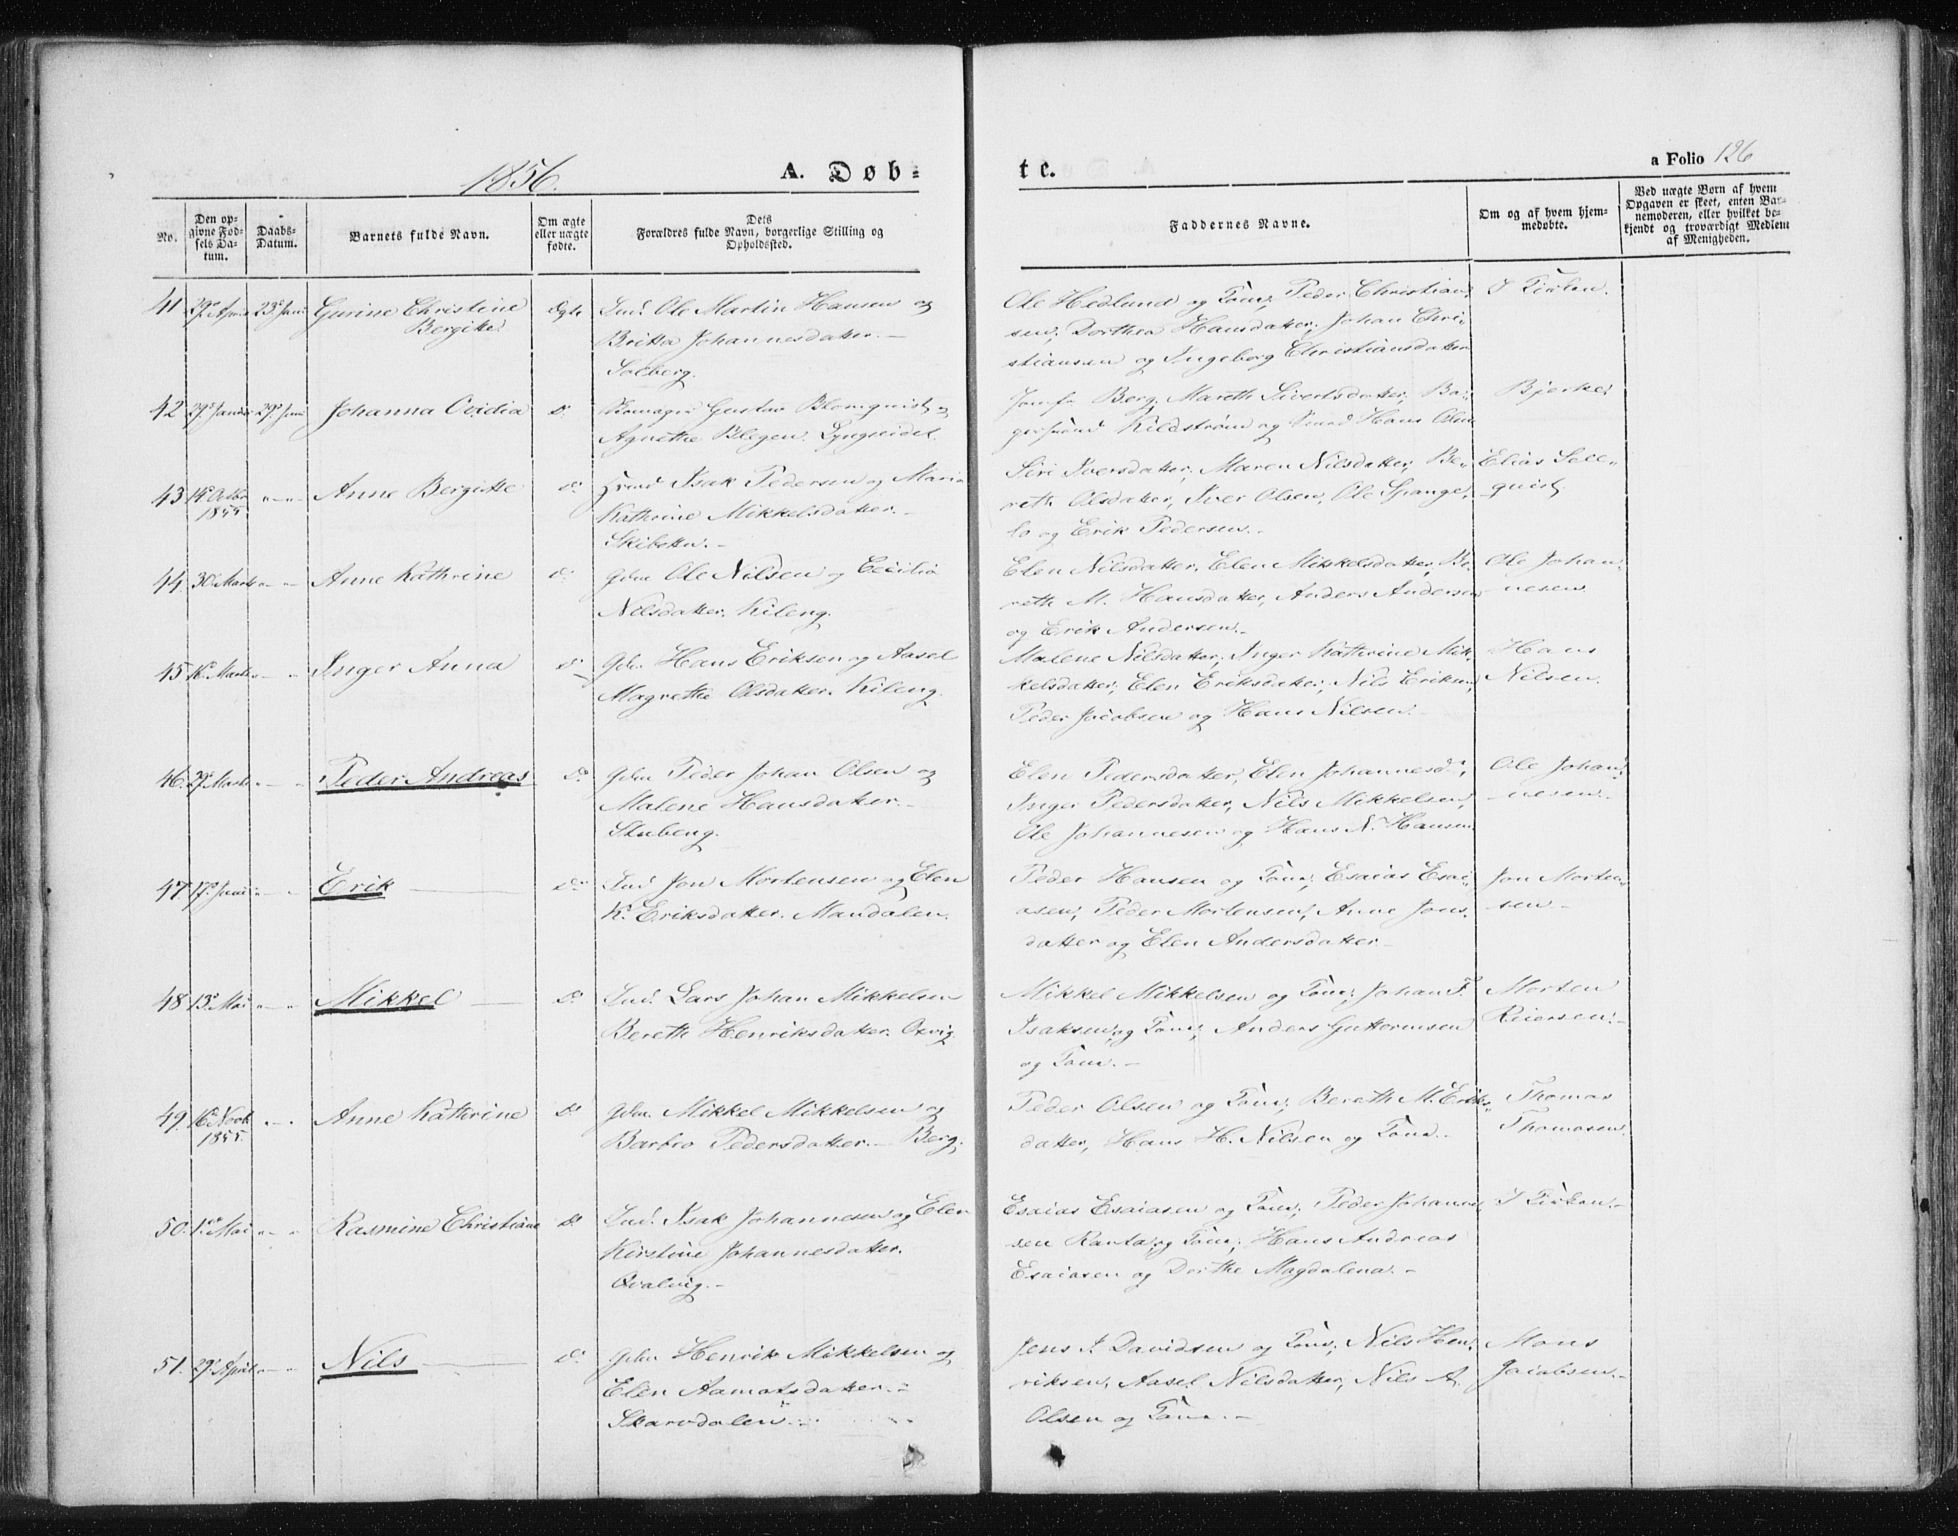 1856.
A. Døb-
te.
a Folio 126
No.
Den op-
givne Fød-
sels Da-
tum.
Daabs-
Datum.
Barnets fulde Navn.
Om ægte
eller uægte
fødte.
Dets
Forældres fulde Navn, borgerlige Stilling og
Opholdssted.
Faddernes Navne.
Om og af hvem hjem-
medøbte.
Ved uægte Børn af hvem
Opgaven er skeet, enten Bar-
nemoderen, eller hvilket be-
kjendt og troværdigt Medlem
af Menigheden.
41 29de April 23de Juni Gurine Christine
Bergitte
Ole Martin Hansen og
Britta Johannesdatter.-
Solberg.
Ole Hedlund og Peder Christian-
sen; Dorthea Hansdatter; Johan Chri-
stiansen og Ingeborg Christiansdatter
I Kirken.
42 29de Januar 29de Juni Johanna Ovidia Do
Gustav Blomquist og
Agnethe Blegen. Lyngseidet.
Berg; Mareth Sivertsdatter;
Kildstrøm og Hans Olsen
Bjerke
43 14de Octbr " - " Anne Bergitte Do
1855
Isak Pedersen og Maria
Kathrine Mikkelsdatter.-
Skibotten.-
Siri Iversdatter; Maren Nilsdatter; Be-
reth Olsdatter, Iver Olsen, Ole Spange-
lo og Erik Pedersen.-
Elias Sale-
quist
44 30 Marts " - " Anne Kathrine Do
Gdm. Ole Nilsen og Cecilia
Nilsdatter. Kileng.
Elen Nilsdatter, Elen Mikkelsdatter, Be-
reth M. Hansdatter, Anders Andersen
og Erik Andersen.-
Ole Johan-
nesen
45 16de Marts " - " Inger Anna Do
Gdm. Hans Eriksen og Aasel
Magrethe Olsdatter. Kileng.
Malene Nilsdatter; Inger Kathrine Mik-
kelsdatter; Elen Eriksdatter; Nils Eriksen;
Peder Jacobsen og Hans Nilsen.-
Hans
Nilsen.
46. 29de Marts " - " Peder Andreas Do
Gdm. Peder Johan Olsen og
Malene Hansdatter.-
Stubeng.
Elen Pedersdatter, Elen Johannesdr,
Inger Pedersdatter, Nils Mikkelsen,
Ole Johannesen og Hans N. Hansen
Ole Johan-
nesen.-
47 17de Juni " - " Erik Do
Ind. Jon Mortensen og Elen
K. Eriksdatter. Mandalen.
Peder Hansen og Esaias Esai-
asen; Peder Mortensen; Anne Jons-
datter og Elen Andersdatter.-
Jon Morten-
sen-
48 13de Mai " - " Mikkel Do
Ind. Lars Johan Mikkelsen
Bereth Henriksdatter. Oxvig.
Mikkel Mikkelsen og Johan F.
Isaksen, og Anders Guttormsen
og
Morten
Reiersen.-
49. 16de Novb " - " Anne Kathrine Do
1855.
Gdm. Mikkel Mikkelsen og
Barbro Pedersdatter.- Berg.
Peder Olsen og Bereth M. Eriks-
datter, Hans H. Nilsen og
Thomas
Thomasen.
50. 1ste Mai " - " Rasmine Christiane Do
Ind. Isak Johannesen og Elen
Kirstine Johannesdatter.
Qvalvig.-
Esaias Esaiasen og Peder Johanne-
sen Ranta, og Hans Andreas
Esaiasen og Dorthe Magdalena.-
I Kirken.-
51. 29de April " - " Nils Do
Gdm. Henrik Mikkelsen og
Elen Aamotsdatter.-
Skarvdalen.
Jens J. Davidsen og Nils Hen-
riksen, Aasel Nilsdatter, Nils A.
Olsen og
Mons
Jacobsen.-